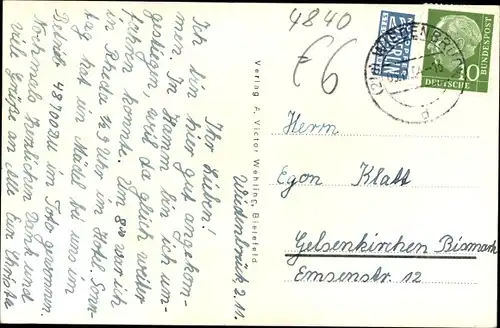 Wiedenbrück, 2.11.
Ihr Lieben!
Ich bin hier gut angekom-
men. In Hamm bin ich um-
gestiegen, weil da gleich weiter
fahren konnte. Um 8 war ich
in Rheda ½9 Uhr im Hotel. Sonn-
tag hat ein Mädel bei uns im
Betrieb 48700 DM im Toto gewonnen.
Nochmals herzlichen Dank und
viele Grüße an Alle Eure Christa
Verlag A. Victor Wehling, Bielefeld
4840
£6
WIEDENBRÜCK
d
DEUTSCHE
BUNDESPOST
10
Herrn
Egon Klatt
Gelsenkirchen Bismark
Emsenstr. 12